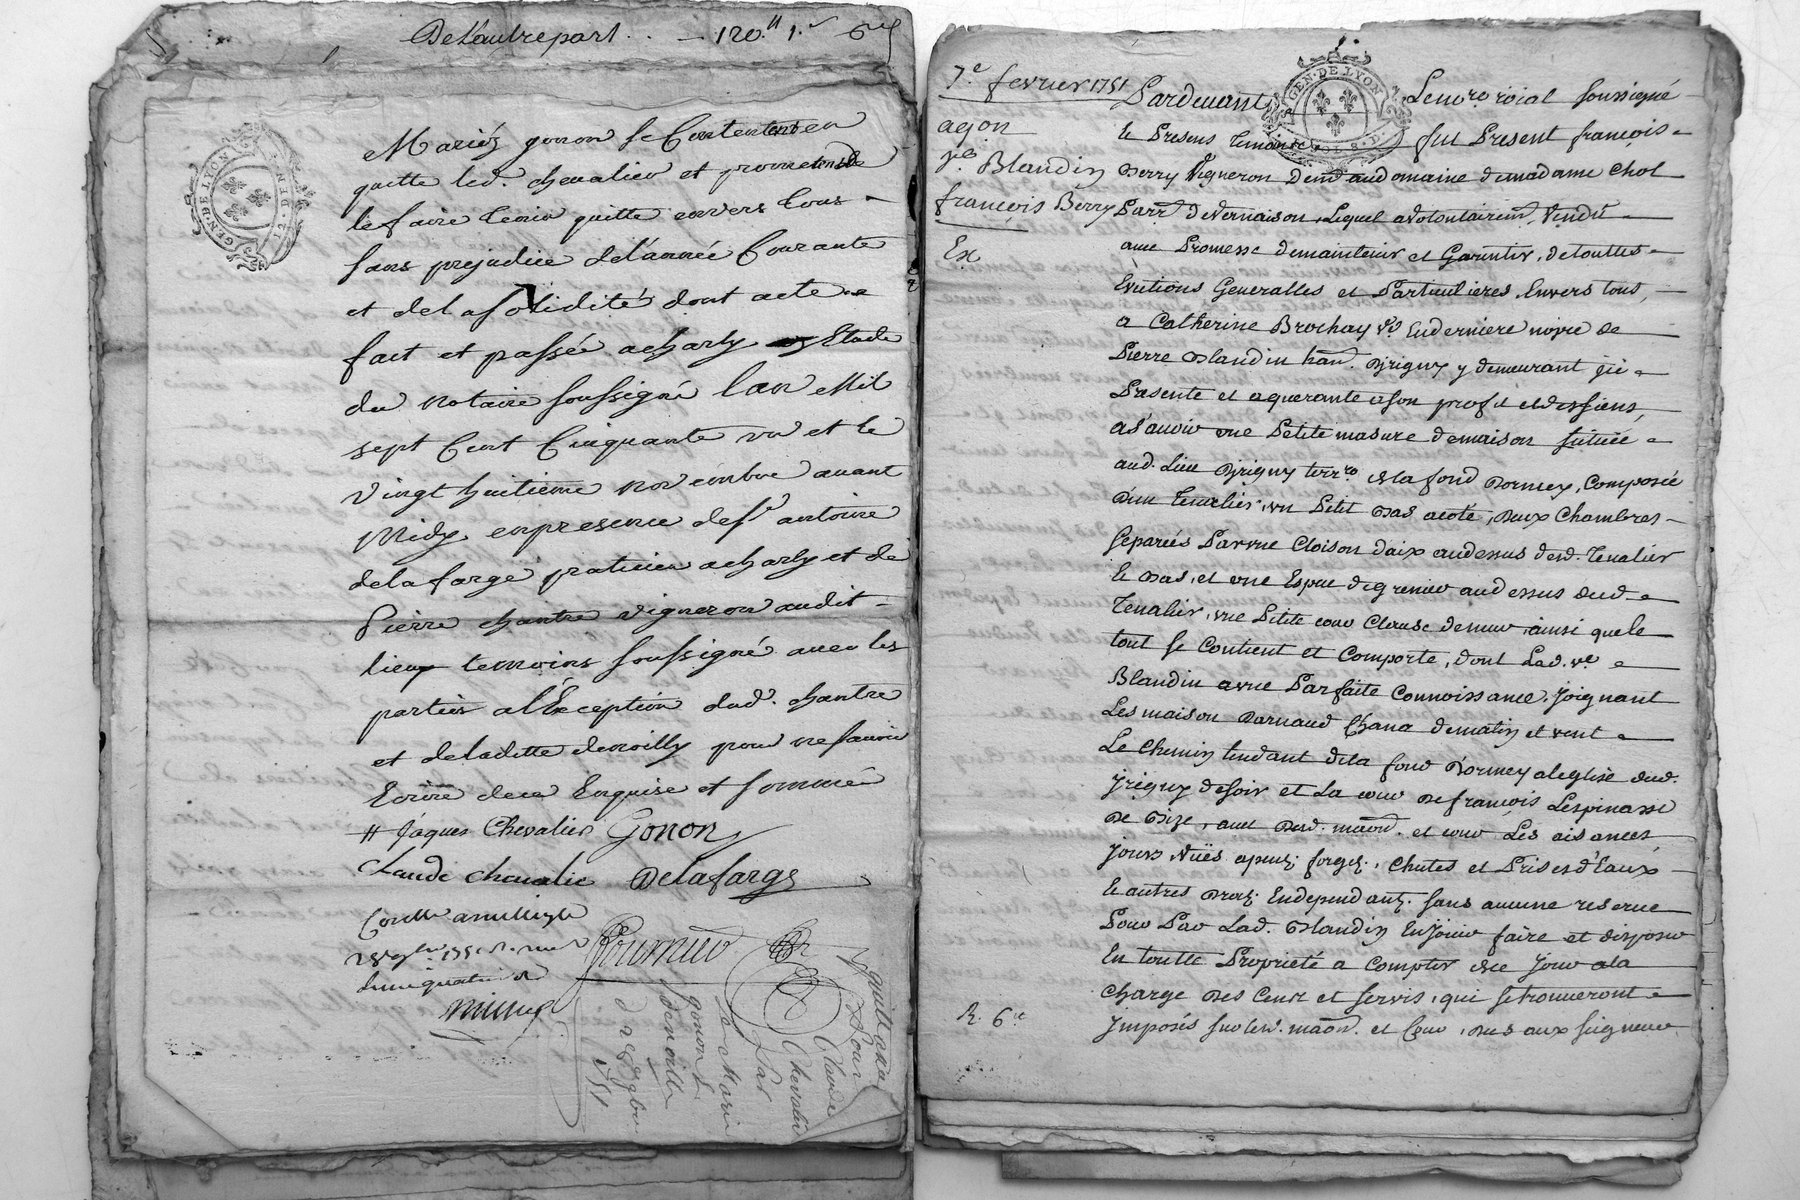 De l'autre part . . — 120.ᴴ 1.ˢ 6ᵈ
GEN·DE LYON
DEN·ET
Mariéz gonon se Contentent en
quitte led. chevalier et promettent de
le faire tenir quitte envers tous
sans prejudice de l'année Courante
et de la solidité dont acte
fait et passée a charly Etude
du notaire soussigné l'an Mil
sept Cent Cinquante un et le
vingt huitieme novembre avant
Midy en presence de sr antoine
delafarge praticien a charly et de
Pierre chantre vigneron audit
lieu temoins soussigné avec les
parties a l'Exception dud. chantre
et deladitte denoilly pour ne savoir
Ecrire de ce Enquise et sommée
Jâques Chevalier Gonon
Claude chevalie Delafarge
Controllé a
28 9bre 1751 R.
Fournaud
quittance
Pour
Claude
Chevalier
Par
Marie
gonon &
denoilly
du 28 9bre
1751
7.e fevrier 1751
agon
Vve Blandin
françois Berry
Ex
R. 6ᵗᵗ
GEN·DE LYON
Pardevant Le nore roial soussigné
et Presens Temoins fut Present françois
Berry Vigneron Demt au domaine de madame Chol
Parr. de Vernaison, Lequel a volontairemt, Vendu
avec Promesse de maintenir et Garentir, de touttes
Evitions Generalles et Particulieres, Envers tous,
a Catherine Brochay vve En derniere nopce de
Pierre Blandin han. D'jrigny y demeurant jci
Presente et aquerante a son profit et des siens,
a sâvoir une Petite masure de maison situéé
aud. Lieu D'jrigny terrre De la fond Dormey, Composéé
D'un Tenalier, un Petit Bas a coté, Deux Chambres
separéés Par une Cloison D'aix au dessus dud. Tenalier
et Bas, et une Espace de grenier au dessus dud.
Tenalier, une Petite cour Clause de mur, ainsi que le
tout se Contient et Comporte, dont Lad. ve
Blandin a une Parfaite Connoissance, Joignant
Les maison D'arnaud Chana de matin et vent
Le Chemin tendant de la fond D'ormey a l'eglise dud.
jrigny de soir et La cour De françois Lespinasse
De Bize, avec Desd. maon. et cour Les aisances
jours, vuës apend. forgs., Chutes et Prises d'Eaux
et autres Droits Endependants. sans aucune reserve
Pour Par Lad. Blandin En joüir faire et disposer
En toutte Proprieté a Compter de ce Jour a la
Charge Des Cens et servis, qui se trouveront
jmposés sur les. maon. et Cour, Dus aux seigneur